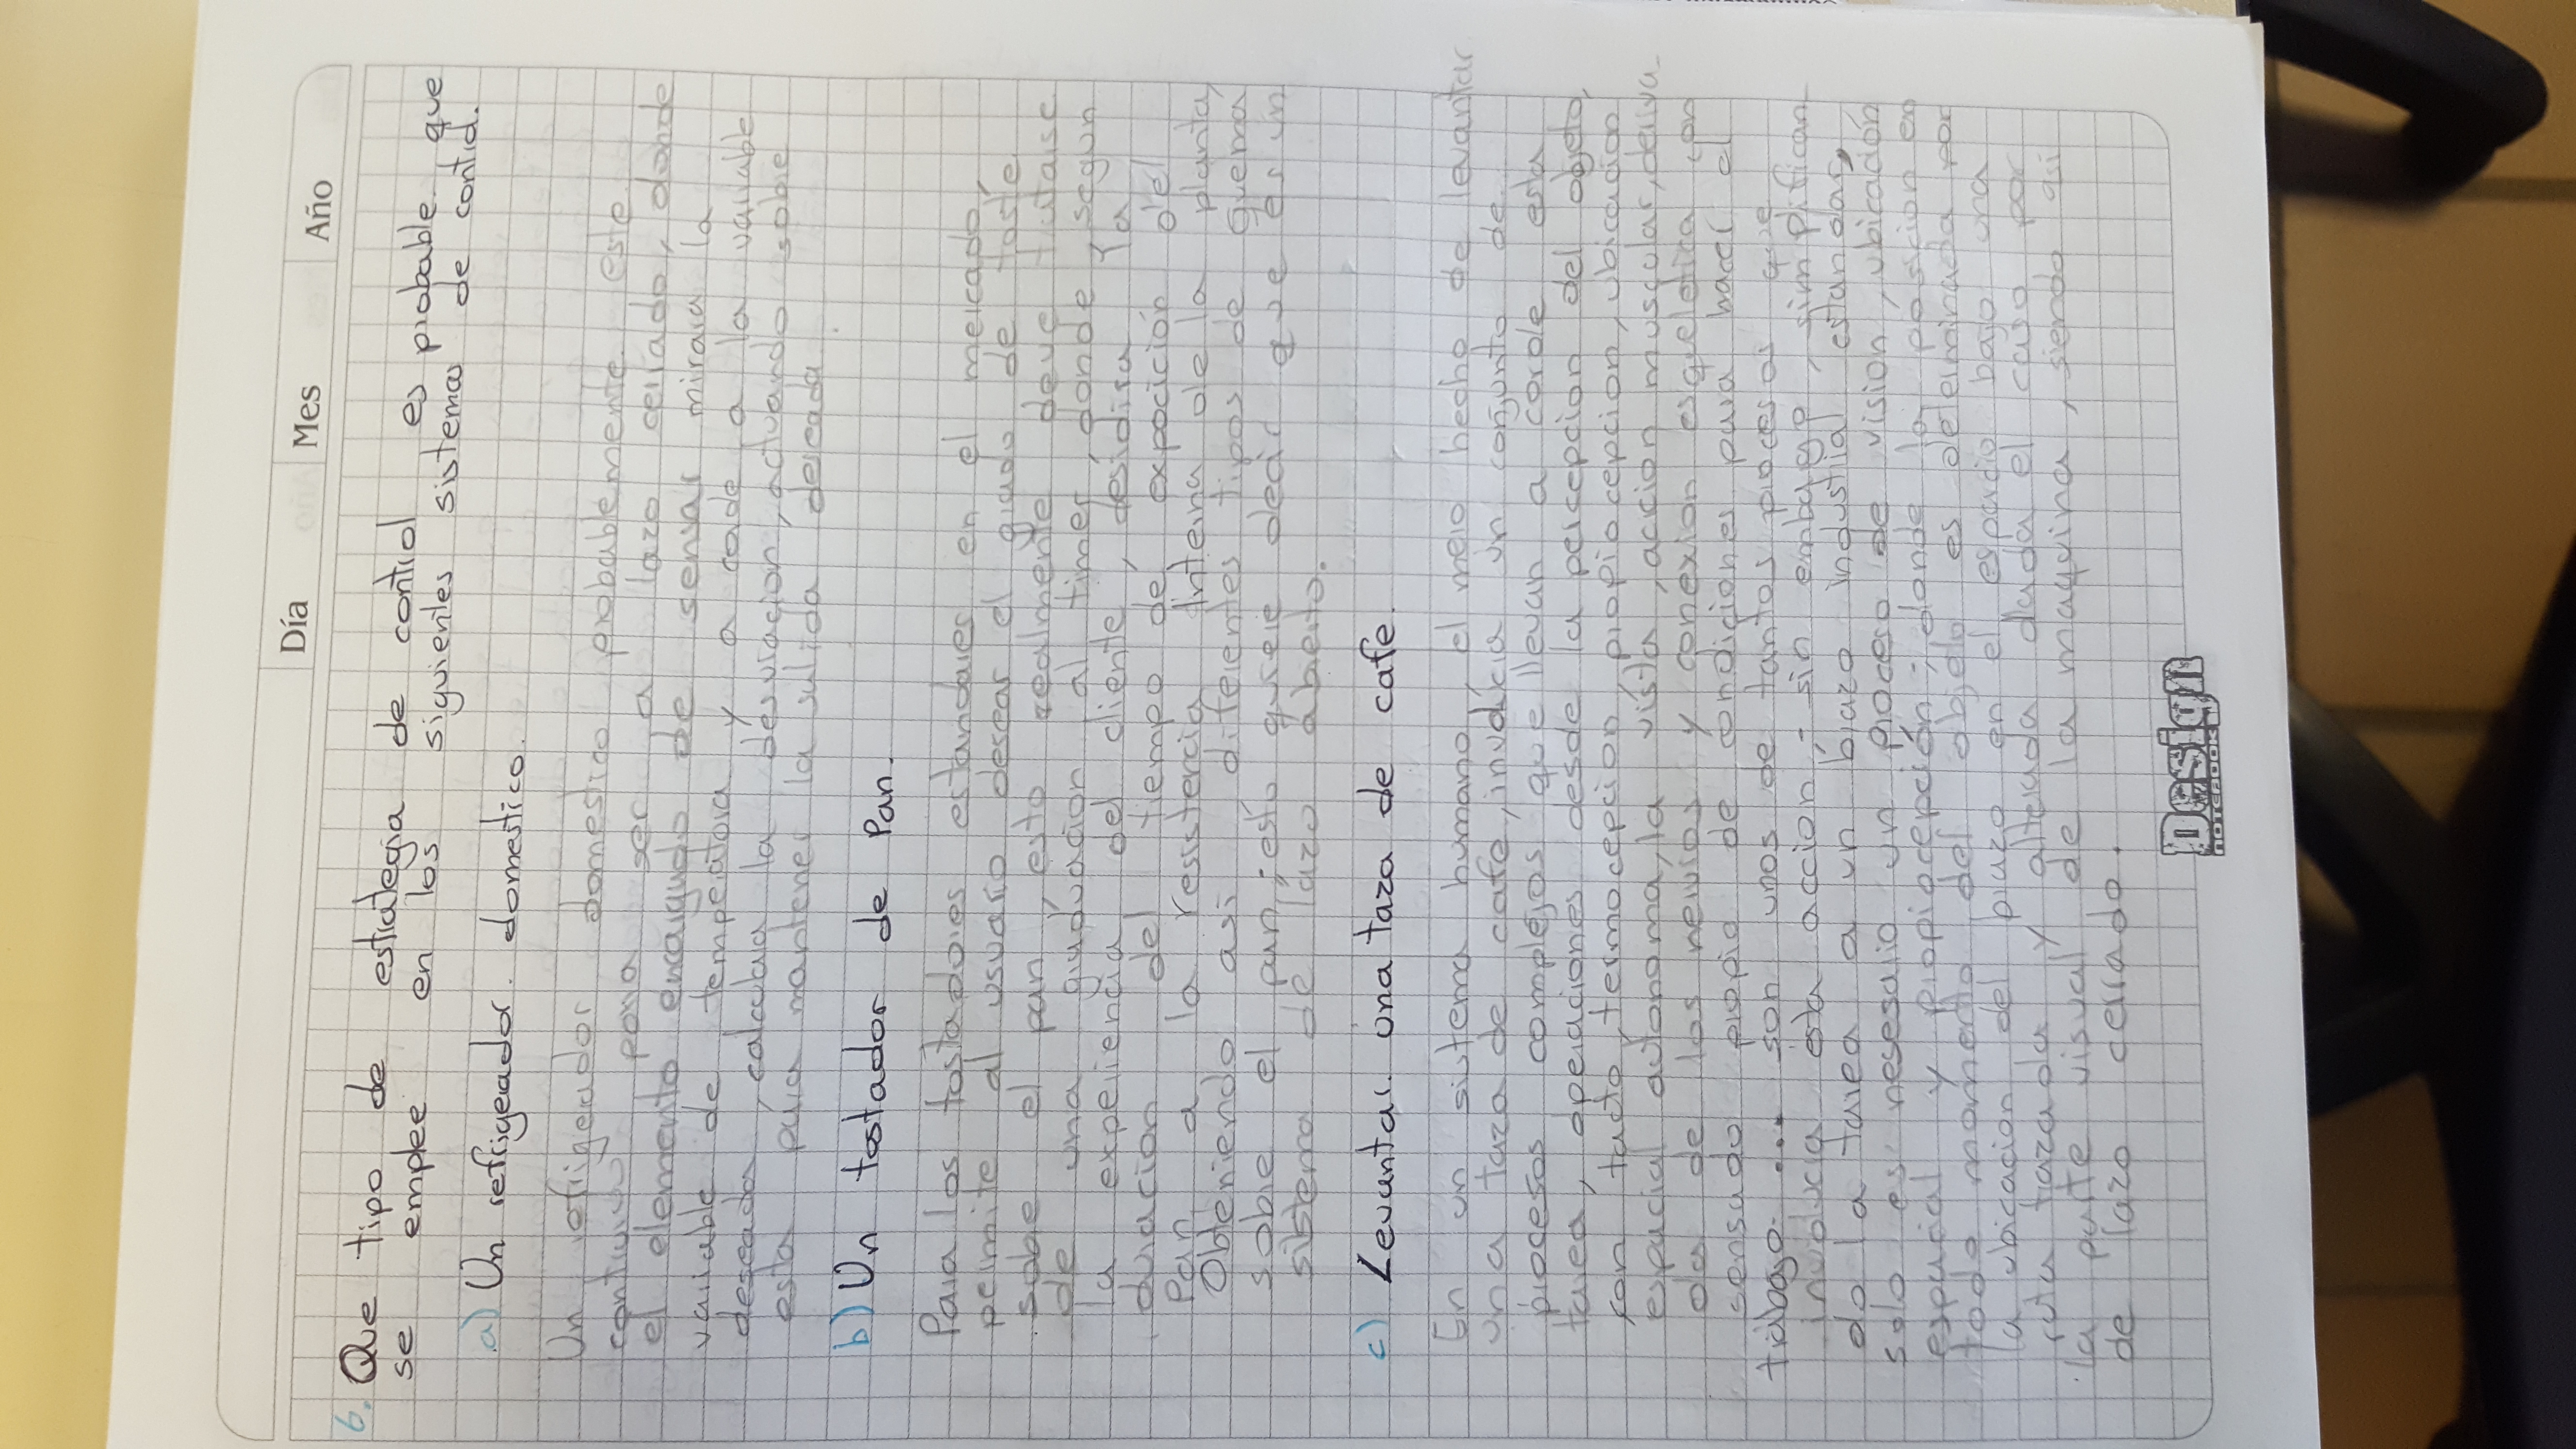 Día Mes Año
6. Que tipo de estrategia de control es probable que
se emplee en los siguientes sistemas de control.
a) Un refrigerador domestico.
Un refrigerador domestico probablemente este
para ser a lazo cerrado, donde
el elemento encargado de sensar mirara la
variable de temperatura y a corde a la variable
deseada, calculara la desviacion, actuando sobre
esta para mantener la salida deseada.
b) Un tostador de Pan.
Para los tostadores estandares en el mercado,
permite al usuario desear el grado de toste
sobre el pan, esto realmente deve tratarse
de una graduacion al timer, donde, segun
la experiencia del cliente, desidira la
duracion del tiempo de expocición del
Pan a la resistencia interna de la planta,
Obteniendo asi diferentes tipos de quema
sobre el pan; esto quiere decir que es un
sistema de lazo abierto.
c) Levantar una taza de cafe.
En un sistema humano, el mero hecho de levantar
una taza de cafe, involucra un conjunto de
procesos complejos que llevan a corde esta
tarea, operaciones desde la percepcion del objeto,
con tacto, termocepcion, propiocepcion, ubicacion
espacial autonoma, la vista, accion muscular, deriva-
da de los nervios y conexion esqueletica con
sensado propio de condiciones para hacer el
trabajo.... son unos de tantos procesos que
involucra esta accion; sin embargo, simplifican
do la tarea a un brazo industrial estandar,
solo es nesesario un proceso de vision, ubicación
espacial y propiocepción; donde la posicion en
todo momento del objeto es determinada por
la ubicacion del brazo en el espacio bajo una
ruta trazada y alterada dada el caso por
la parte visual de la maquina, siendo asi
de lazo cerrado.
Design
NOTEBOOK